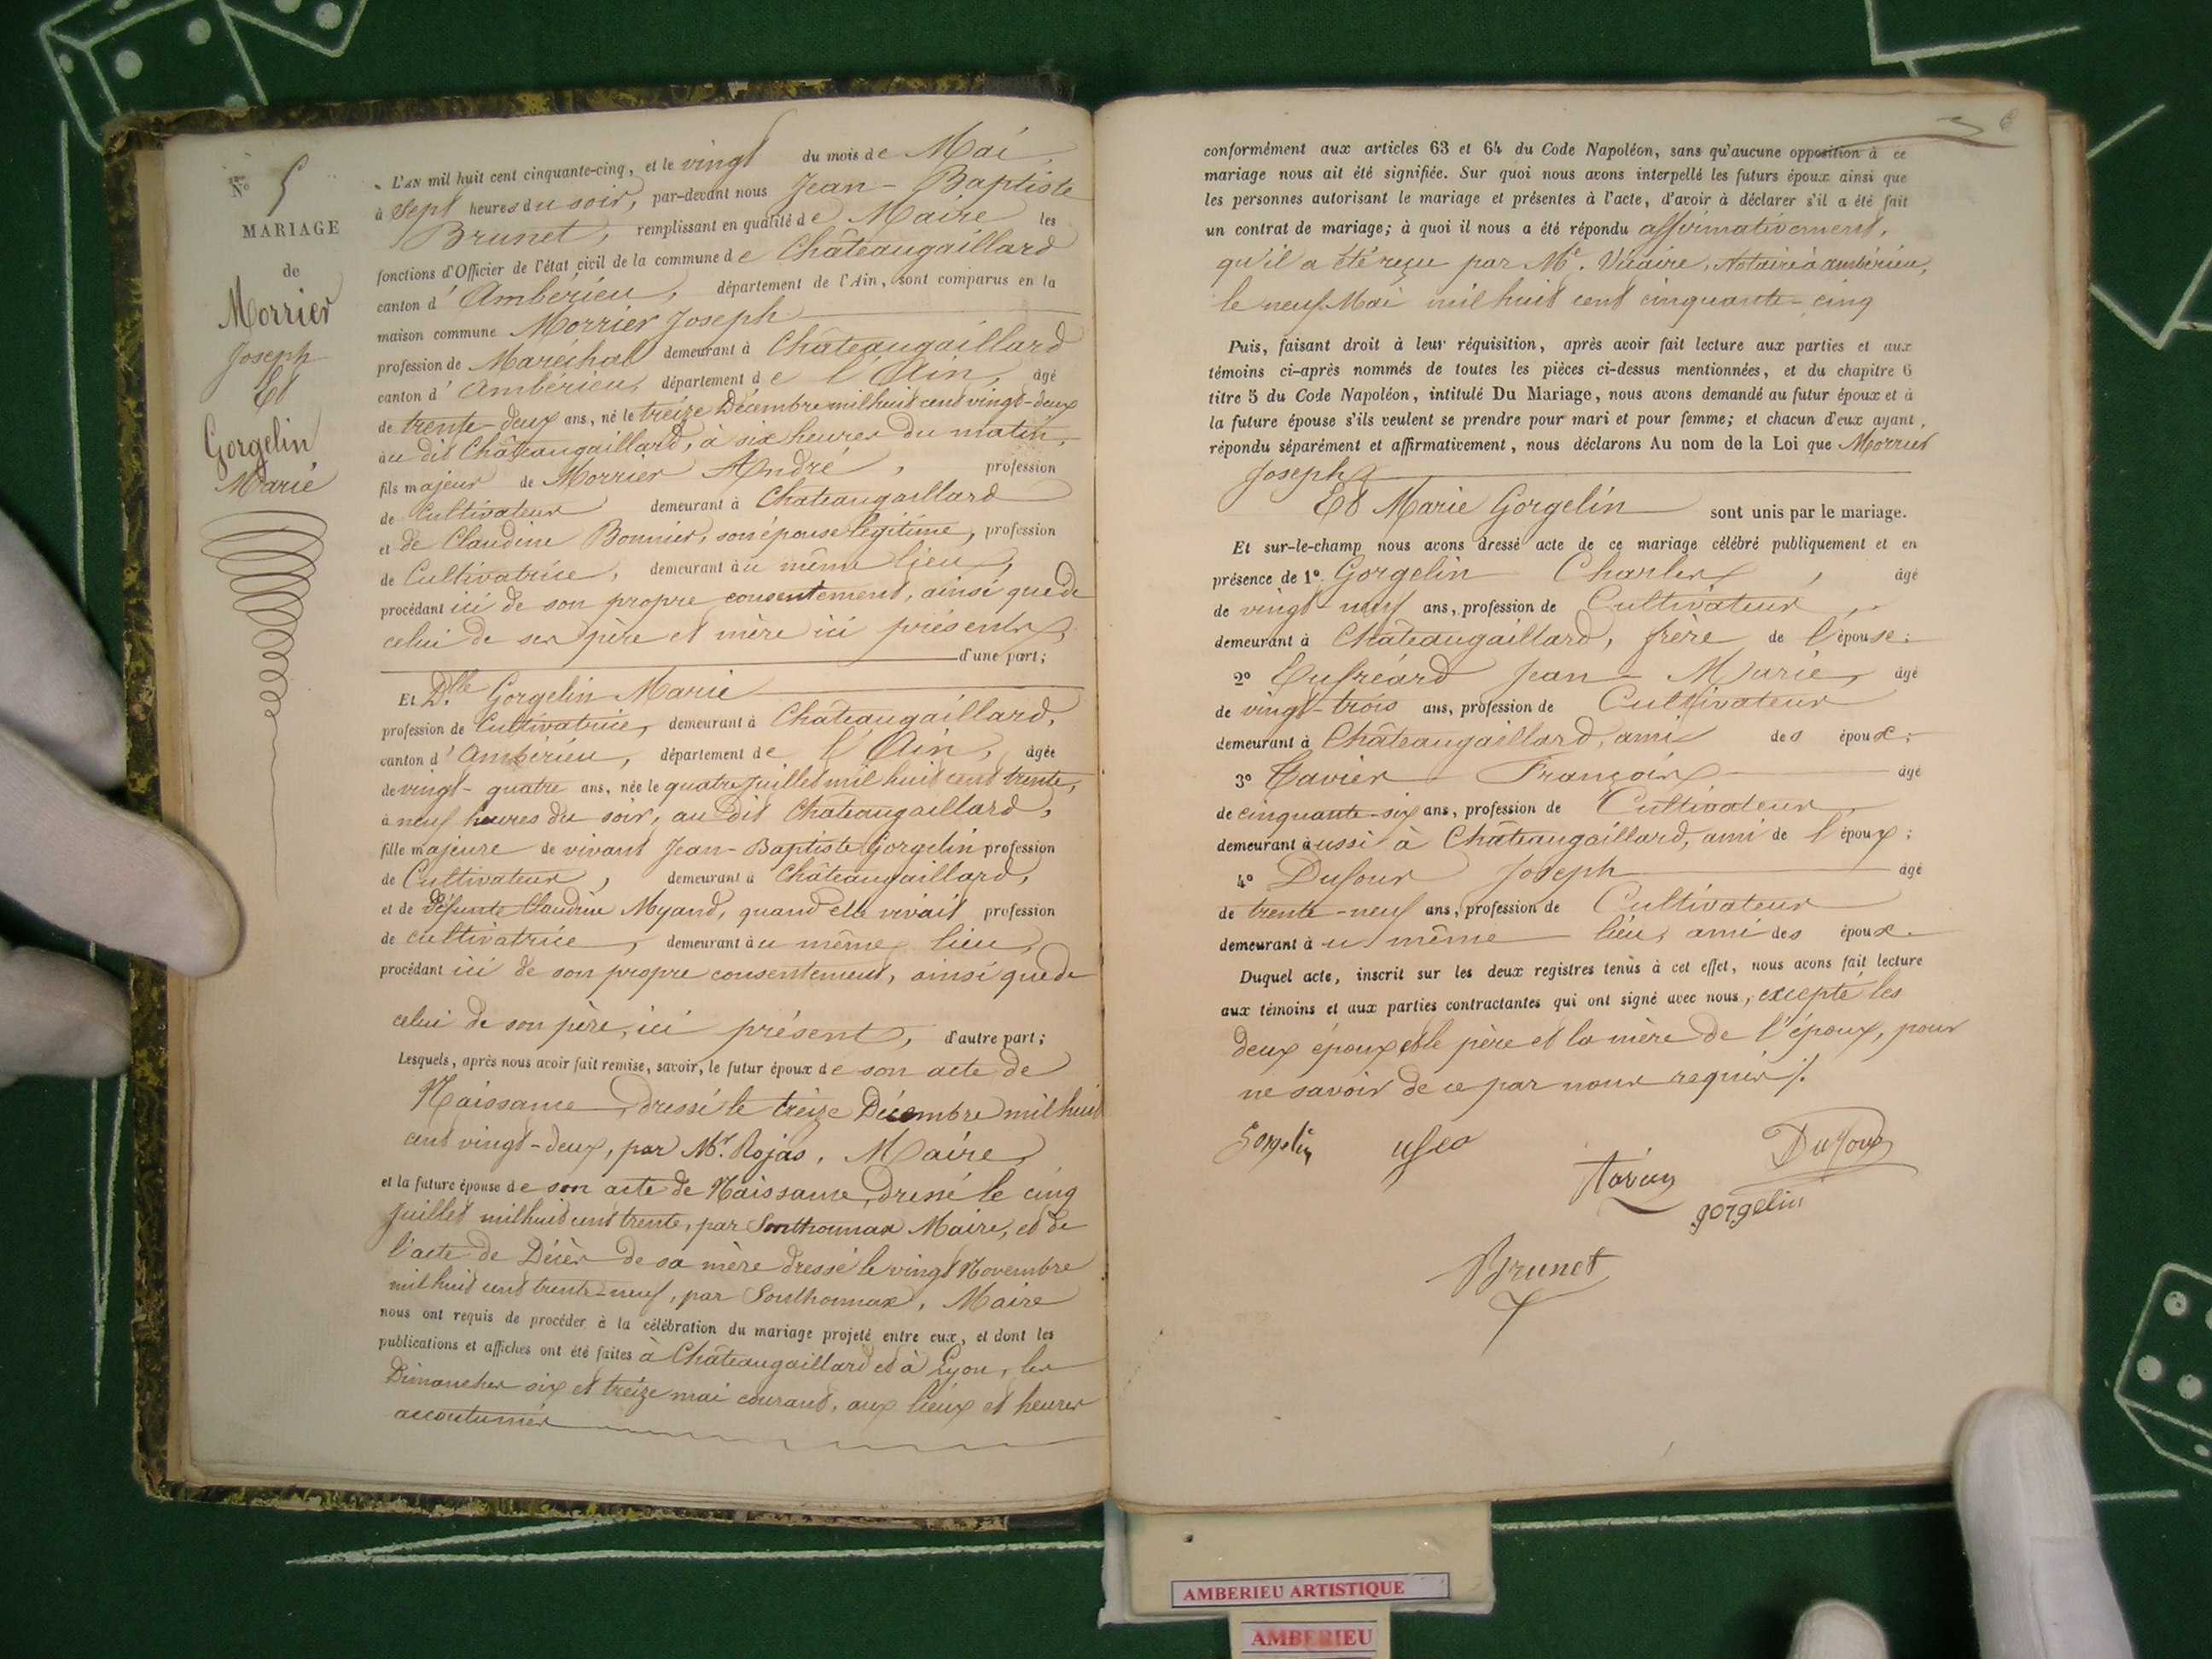 N.° 5
MARIAGE
de
Morrier
Joseph
Et
Gorgelin
Marie
L'AN mil huit cent cinquante-cinq, et le vingt du mois de Mai,
à Sept heures du soir, par-devant nous Jean-Baptiste
Brunet, remplissant en qualité de Maire les
fonctions d'Officier de l'état civil de la commune de Châteaugaillard
canton d'Ambérieu, département de l'Ain, sont comparus en la
maison commune Morrier Joseph
profession de Maréchal demeurant à Châteaugaillard
canton d'Ambérieu, département de l'Ain, âgé
de trente-deux ans, né le treize Décembre mil huit cent vingt-deux
au dit Châteaugaillard, à six heures du matin,
fils majeur de Morrier André, profession
de Cultivateur demeurant à Châteaugaillard
et de Claudine Bonnier, son épouse légitime, profession
de Cultivatrice, demeurant au même lieu,
procédant ici de son propre consentement, ainsi que de
celui de ses père et mère ici présents,
d'une part;
Et D.lle Gorgelin Marie
profession de Cultivatrice, demeurant à Châteaugaillard,
canton d'Ambérieu, département de l'Ain, âgée
de vingt-quatre ans, née le quatre Juillet mil huit cent trente,
à neuf heures du soir, au dit Châteaugaillard,
fille majeure de vivant Jean-Baptiste Gorgelin profession
de Cultivateur, demeurant à Châteaugaillard,
et de défunte Claudine Myand, quand elle vivait profession
de cultivatrice, demeurant au même lieu,
procédant ici de son propre consentement, ainsi que de
celui de son père, ici présent, d'autre part;
Lesquels, après nous avoir fait remise, savoir, le futur époux de son acte de
Naissance, dressé le treize Décembre mil huit
cent vingt-deux, par Mr. Rojas, Maire,
et la future épouse de son acte de Naissance, dressé le cinq
Juillet mil huit cent trente, par Sonthonnax Maire, et de
l'acte de Décès de sa mère dressé le vingt Novembre
mil huit cent trente-neuf, par Sonthonnax, Maire
nous ont requis de procéder à la célébration du mariage projeté entre eux, et dont les
publications et affiches ont été faites à Châteaugaillard et à Lyon, les
Dimanches six et treize mai courant, aux lieux et heures
accoutumés
conformément aux articles 63 et 64 du Code Napoléon, sans qu'aucune opposition à ce
mariage nous ait été signifiée. Sur quoi nous avons interpellé les futurs époux ainsi que
les personnes autorisant le mariage et présentes à l'acte, d'avoir à déclarer s'il a été fait
un contrat de mariage; à quoi il nous a été répondu affirmativement,
qu'il a été reçu par Me. Vicaire, Notaire à ambérieu,
le neuf Mai mil huit cent cinquante-cinq
Puis, faisant droit à leur réquisition, après avoir fait lecture aux parties et aux
témoins ci-après nommés de toutes les pièces ci-dessus mentionnées, et du chapitre 6
titre 5 du Code Napoléon, intitulé Du Mariage, nous avons demandé au futur époux et à
la future épouse s'ils veulent se prendre pour mari et pour femme; et chacun d'eux ayant,
répondu séparément et affirmativement, nous déclarons Au nom de la Loi que Morrier
Joseph
Et Marie Gorgelin sont unis par le mariage.
Et sur-le-champ nous avons dressé acte de ce mariage célébré publiquement et en
présence de 1° Gorgelin Charles, âgé
de vingt-neuf ans, profession de Cultivateur,
demeurant à Châteaugaillard, frère de l'épouse;
2° Cufréard Jean-Marie, âgé
de vingt-trois ans, profession de Cultivateur
demeurant à Châteaugaillard, ami des époux;
3° Tavier François âgé
de cinquante-six ans, profession de Cultivateur,
demeurant aussi à Châteaugaillard, ami de l'époux;
4° Dufour Joseph âgé
de trente-neuf ans, profession de Cultivateur
demeurant au même lieu, ami des époux.
Duquel acte, inscrit sur les deux registres tenus à cet effet, nous avons fait lecture
aux témoins et aux parties contractantes qui ont signé avec nous, excepté les
deux époux et le père et la mère de l'époux, pour
ne savoir de ce par nous requis./.
Gorgelin
Dufour
gorgelin
Brunet
AMBERIEU ARTISTIQUE
AMBERIEU